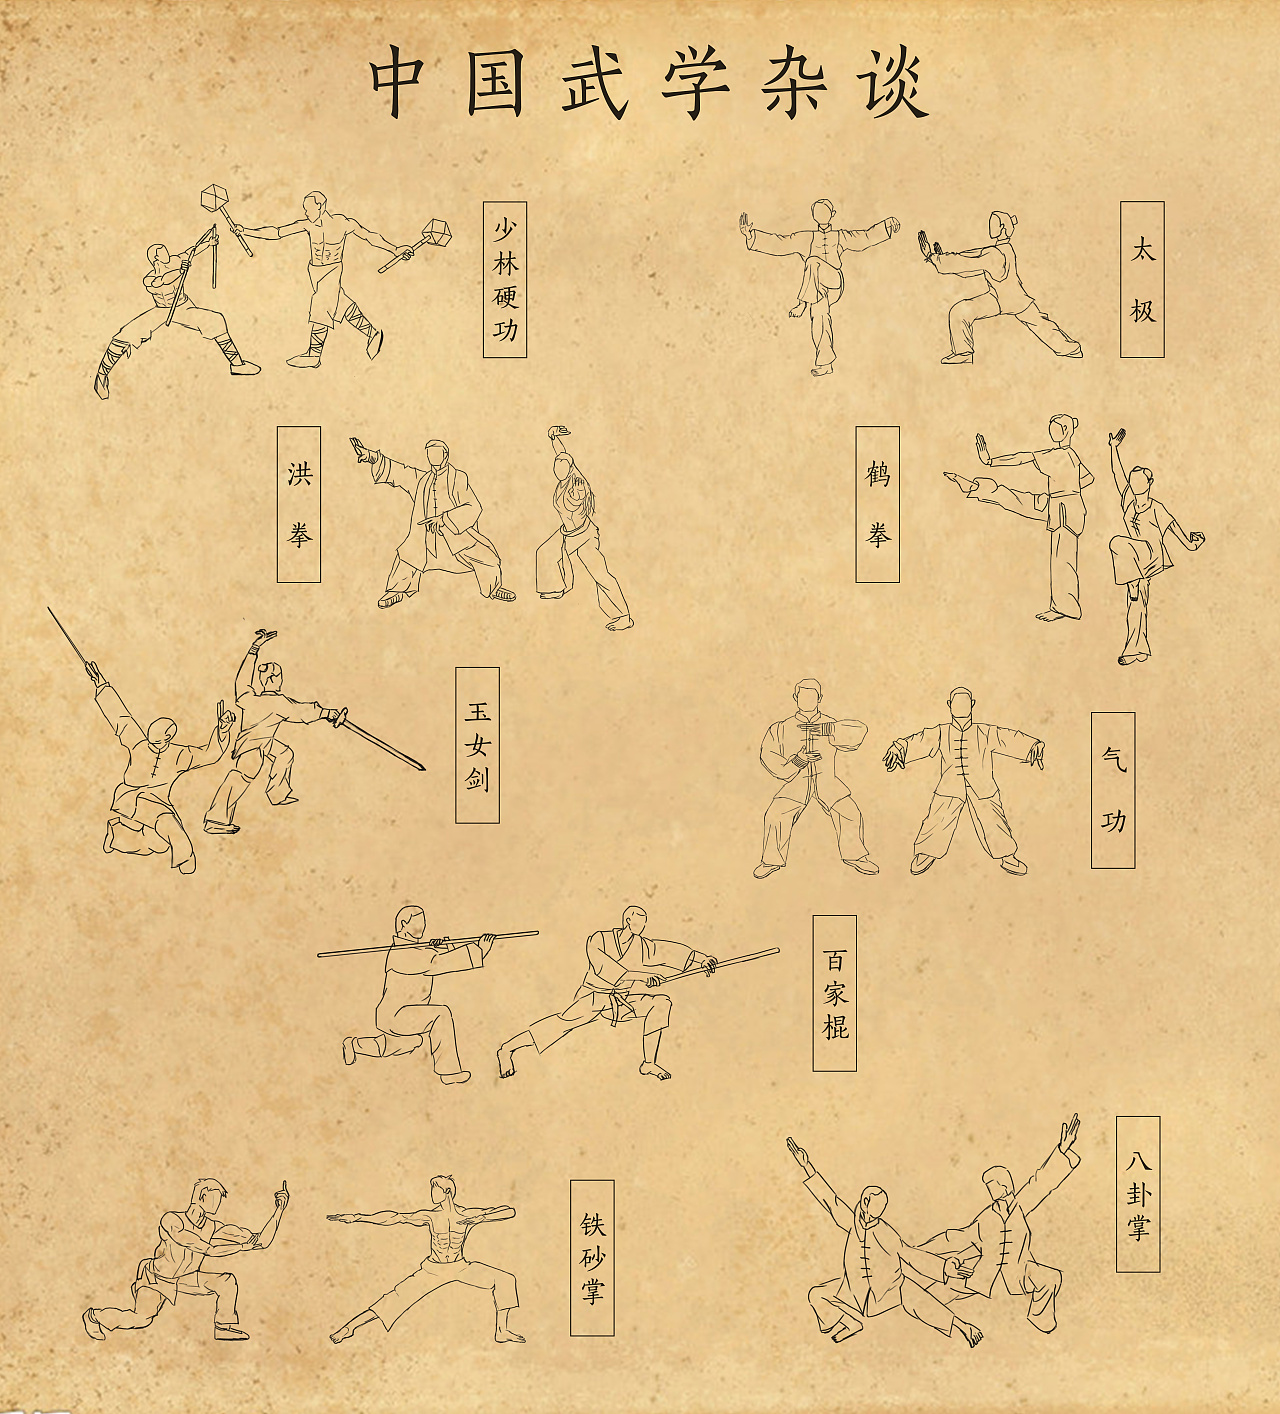 中国武学杂谈
少林硬功
太极
洪拳
鹤拳
玉女剑
气功
百家棍
铁砂掌
八卦掌